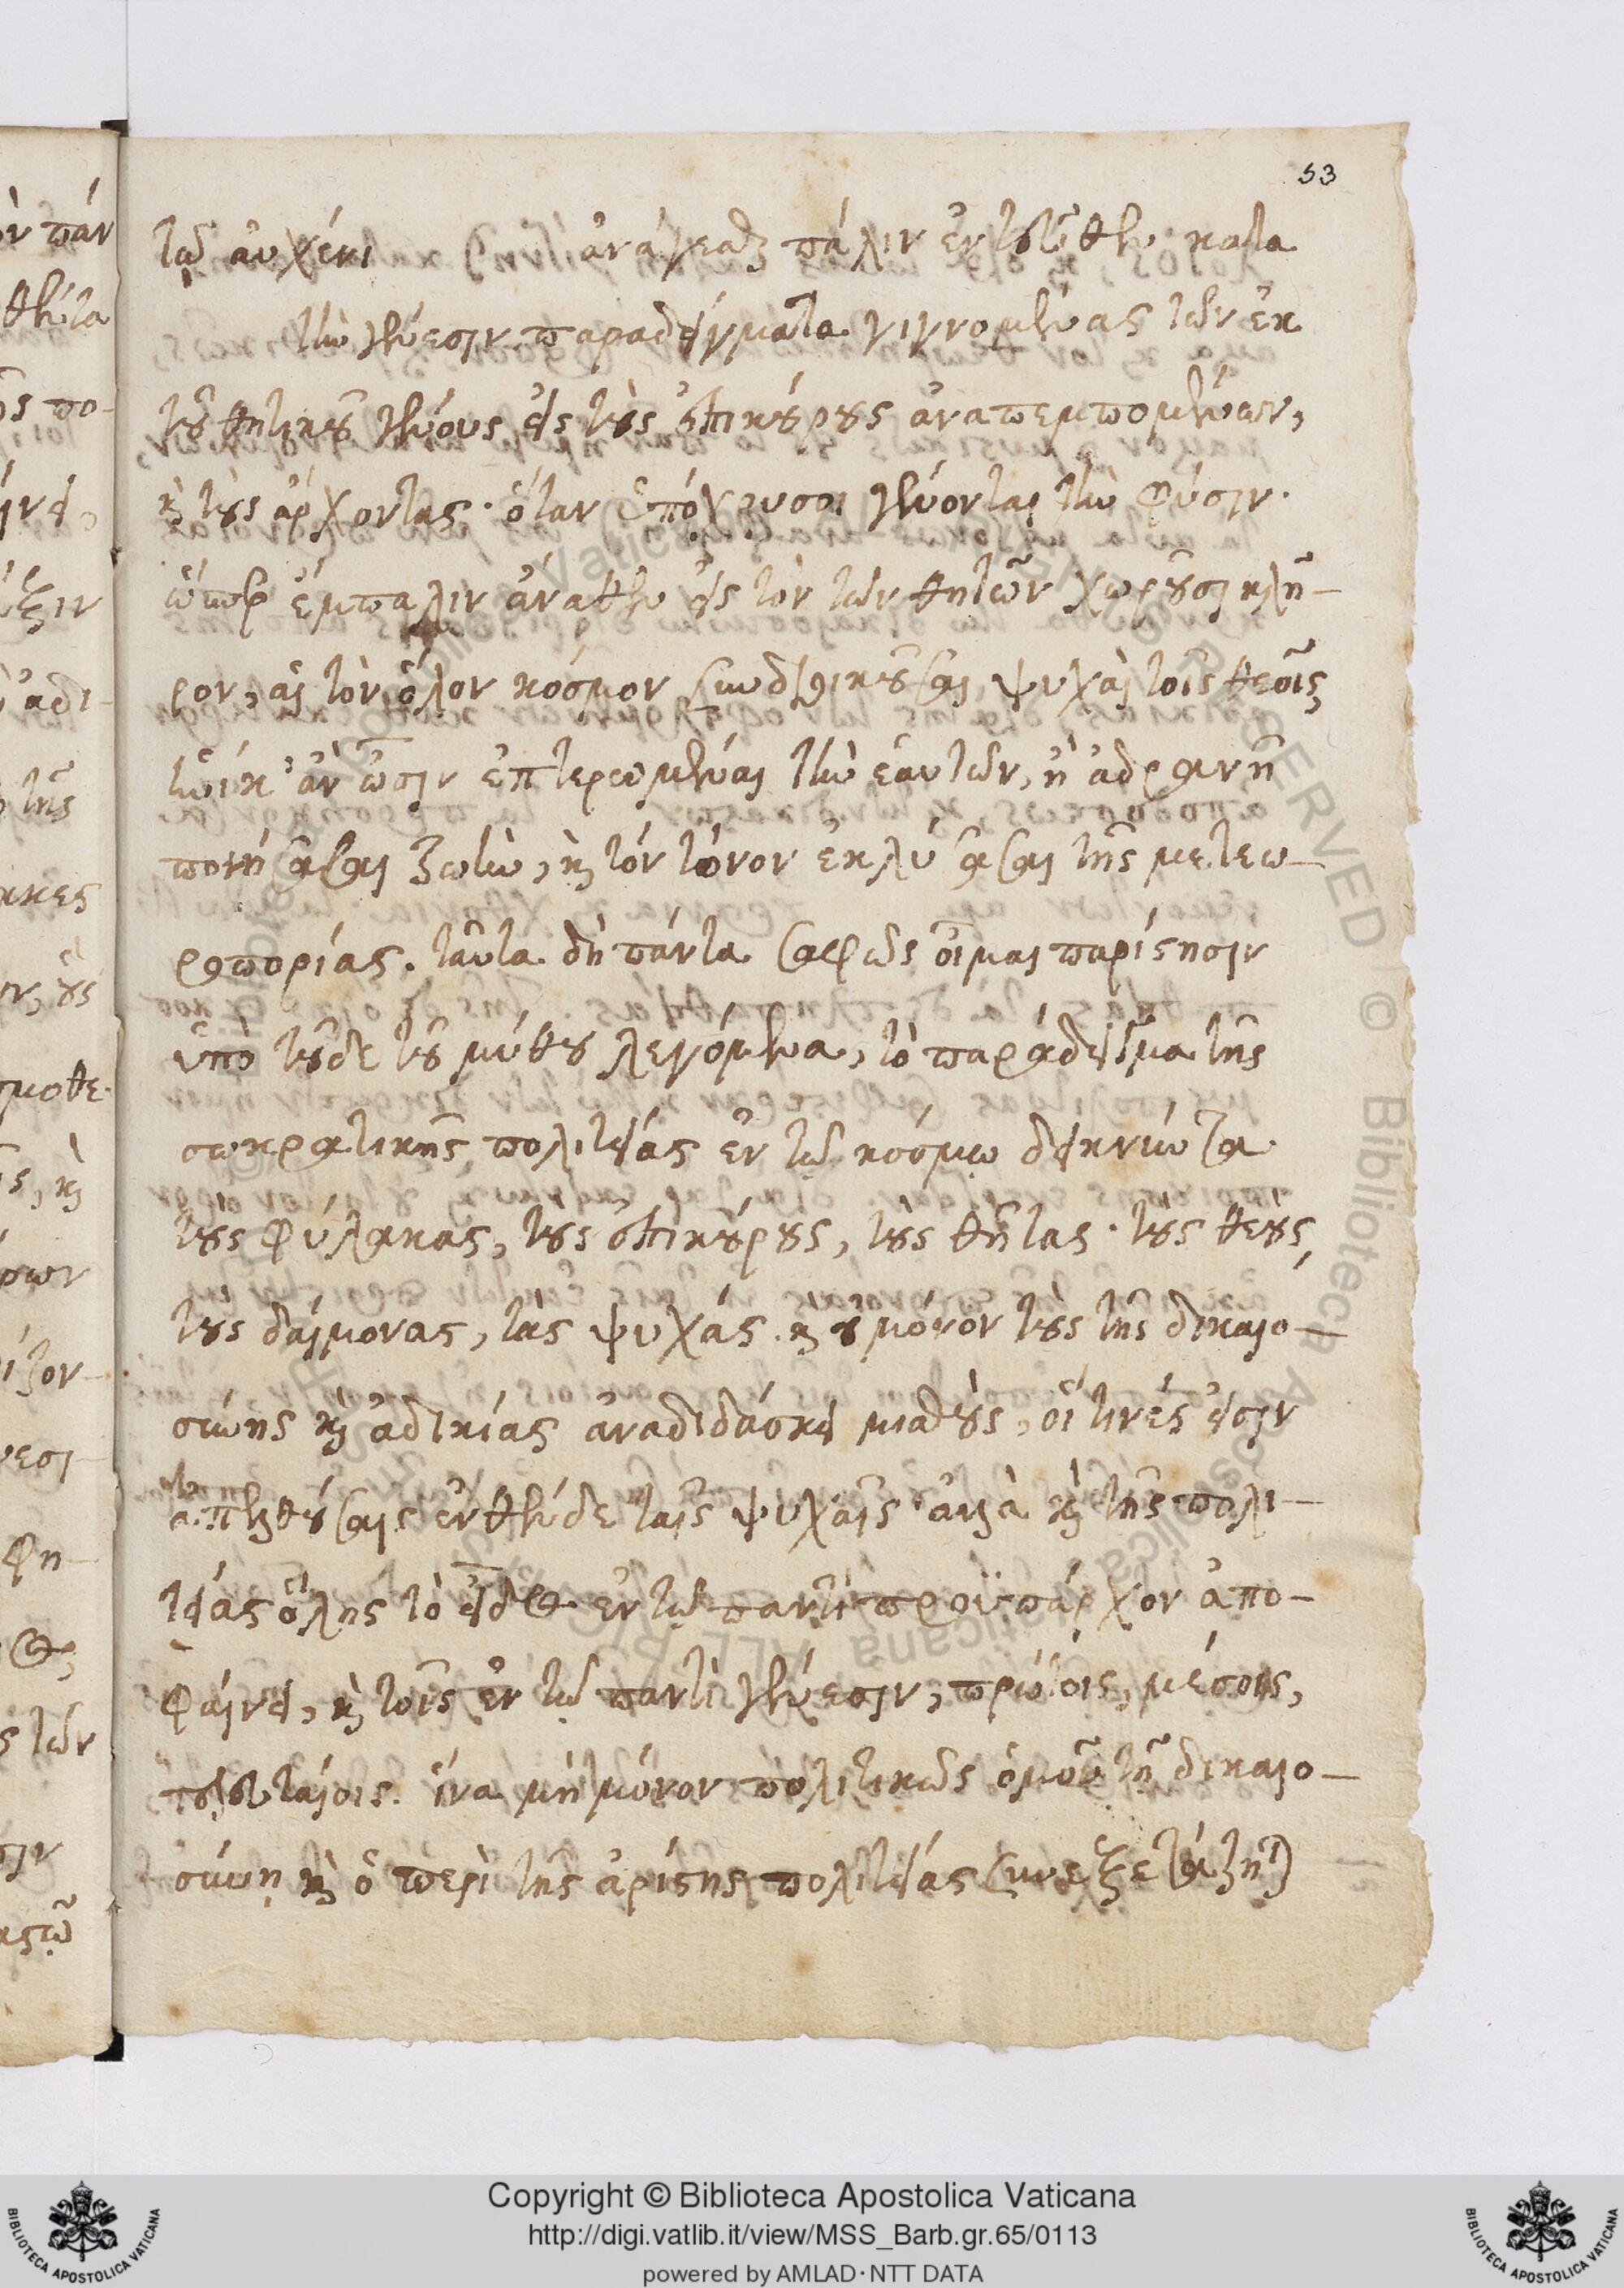 53
τῷ αὐχένι ἀνάγεσθαι πάλιν ἐντεῦθεν κατα
τὴν γένεσιν παραδείγματα γιγνομένας τῶν ἐκ
τοῦ θητικοῦ γένους εἰς τοὺς ἐπικούρους ἀναπεμπομένων,
καὶ τοὺς ἄρχοντας· ὅταν ὑπόχρυσοι γένονται τὴν φύσιν.
ὥσπερ ἔμπαλιν ἄνωθεν εἰς τὸν τῶν θητῶν χωροῦσι κλῆ-
ρον, αἱ τὸν ὅλον κόσμον συνδιοικοῦσαι ψυχαὶ τοῖς θεοῖς
ἡνίκ' ἂν ὦσιν ἐπτερωμέναι τὴν ἑαυτῶν, ἢ ἀδρανῆ
ποιήσασαι ζωὴν, καὶ τὸν τόνον ἐκλύσασαι τῆς μετεω-
ροπορίας. ταῦτα δὴ πάντα σαφῶς οἶμαι παρίστησιν
ὑπὸ τοῦδε τοῦ μύθου λεγόμενα, τὸ παράδειγμα τῆς
σωκρατικῆς πολιτείας ἐν τῷ κόσμῳ δεικνύντα
τοὺς φύλακας, τοὺς ἐπικούρους, τοὺς θῆτας· τοὺς θεούς,
τοὺς δαίμονας, τὰς ψυχάς. καὶ οὐ μόνον τοὺς τῆς δικαιο-
σύνης καὶ ἀδικίας ἀναδιδάσκει μισθοὺς, οἵ τινές εἰσιν
ἀπελθούσαις ἐνθένδε ταῖς ψυχαῖς· ἀλλὰ καὶ τῆς πολι-
τείας ὅλης τὸ εἶδος ἐν τῷ παντὶ προϋπάρχον ἀπο-
φαίνει, καὶ τοῖς ἐν τῷ παντὶ γένεσιν, πρώτοις, μέσοις,
τελευταίοις. ἵνα μὴ μόνον πολιτικῶς ὁμοῦ τῇ δικαιο-
σύνῃ καὶ ὁ περὶ τῆς ἀρίστης πολιτείας συνεξετάζηται
Copyright © Biblioteca Apostolica Vaticana
http://digi.vatlib.it/view/MSS_Barb.gr.65/0113
powered by AMLAD·NTT DATA